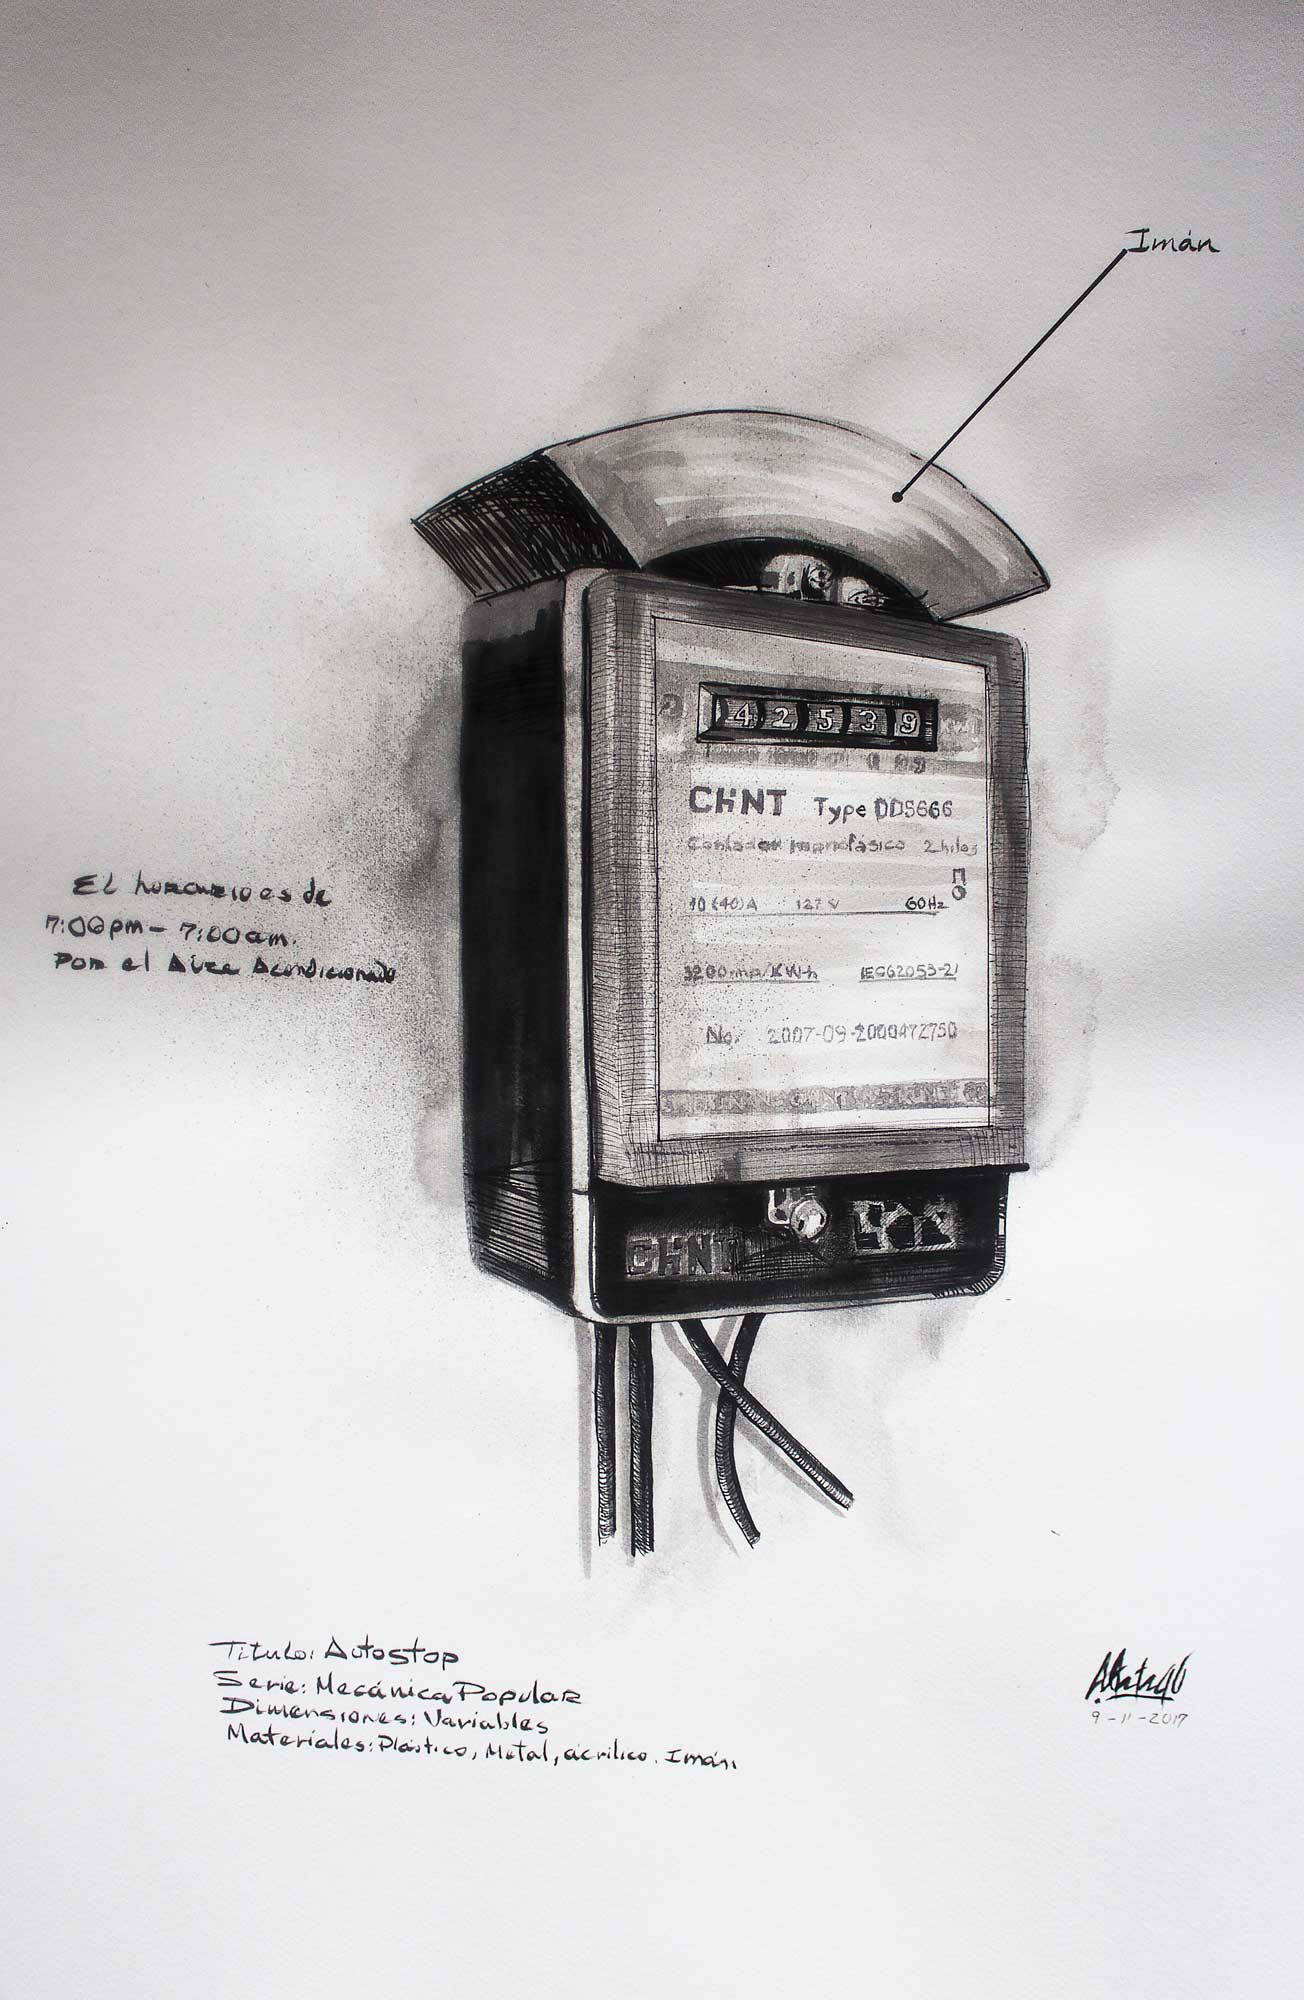 Imán
42539
CHNT Type DDS666
Contador monofásico 2 hilos
10(40)A 127 V 60Hz
3200imp/KW-h IEC62053-21
No. 2007-09-2000472750
El horario es de
7:00pm - 7:00am.
Por el Aire Acondicionado
CHNT
Titulo: Autostop
Serie: Mecánica Popular
Dimensiones: Variables
Materiales: Plástico, Metal, acrílico. Imán.
9-11-2017